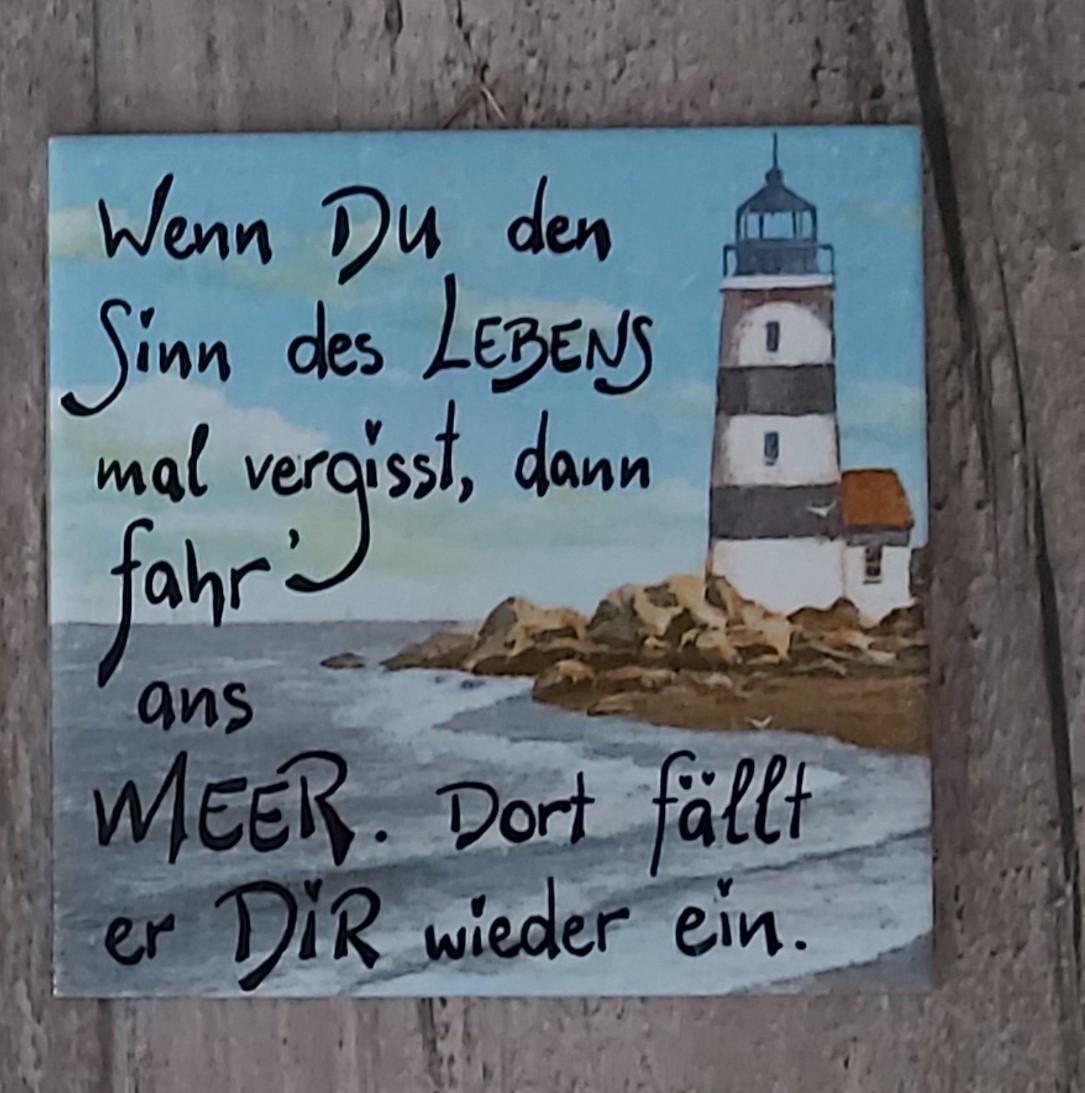 Wenn Du den
Sinn des LEBENS
mal vergisst, dann
fahr'
ans
MEER. Dort fällt
er DiR wieder ein.